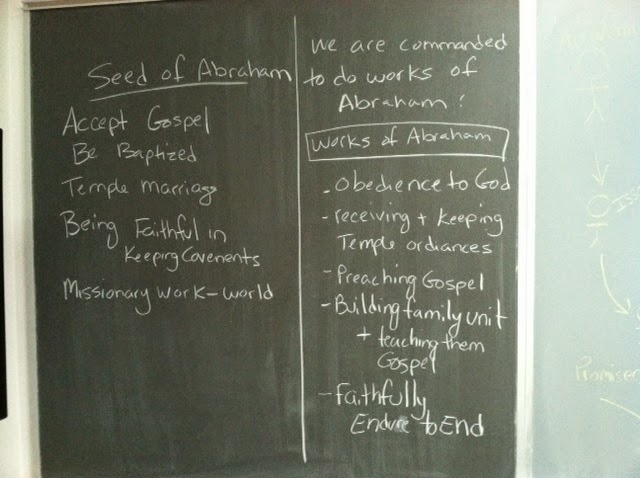 Seed of Abraham
Accept Gospel
Be Baptized
Temple Marriage
Being Faithful in
Keeping Covenents
Missionary work - world
We are commanded
to do works of
Abraham!
Works of Abraham
- Obedience to God
- receiving + keeping
Temple ordiances
- Preaching Gospel
- Building family unit
+ teaching them
Gospel
- Faithfully
Endure to End